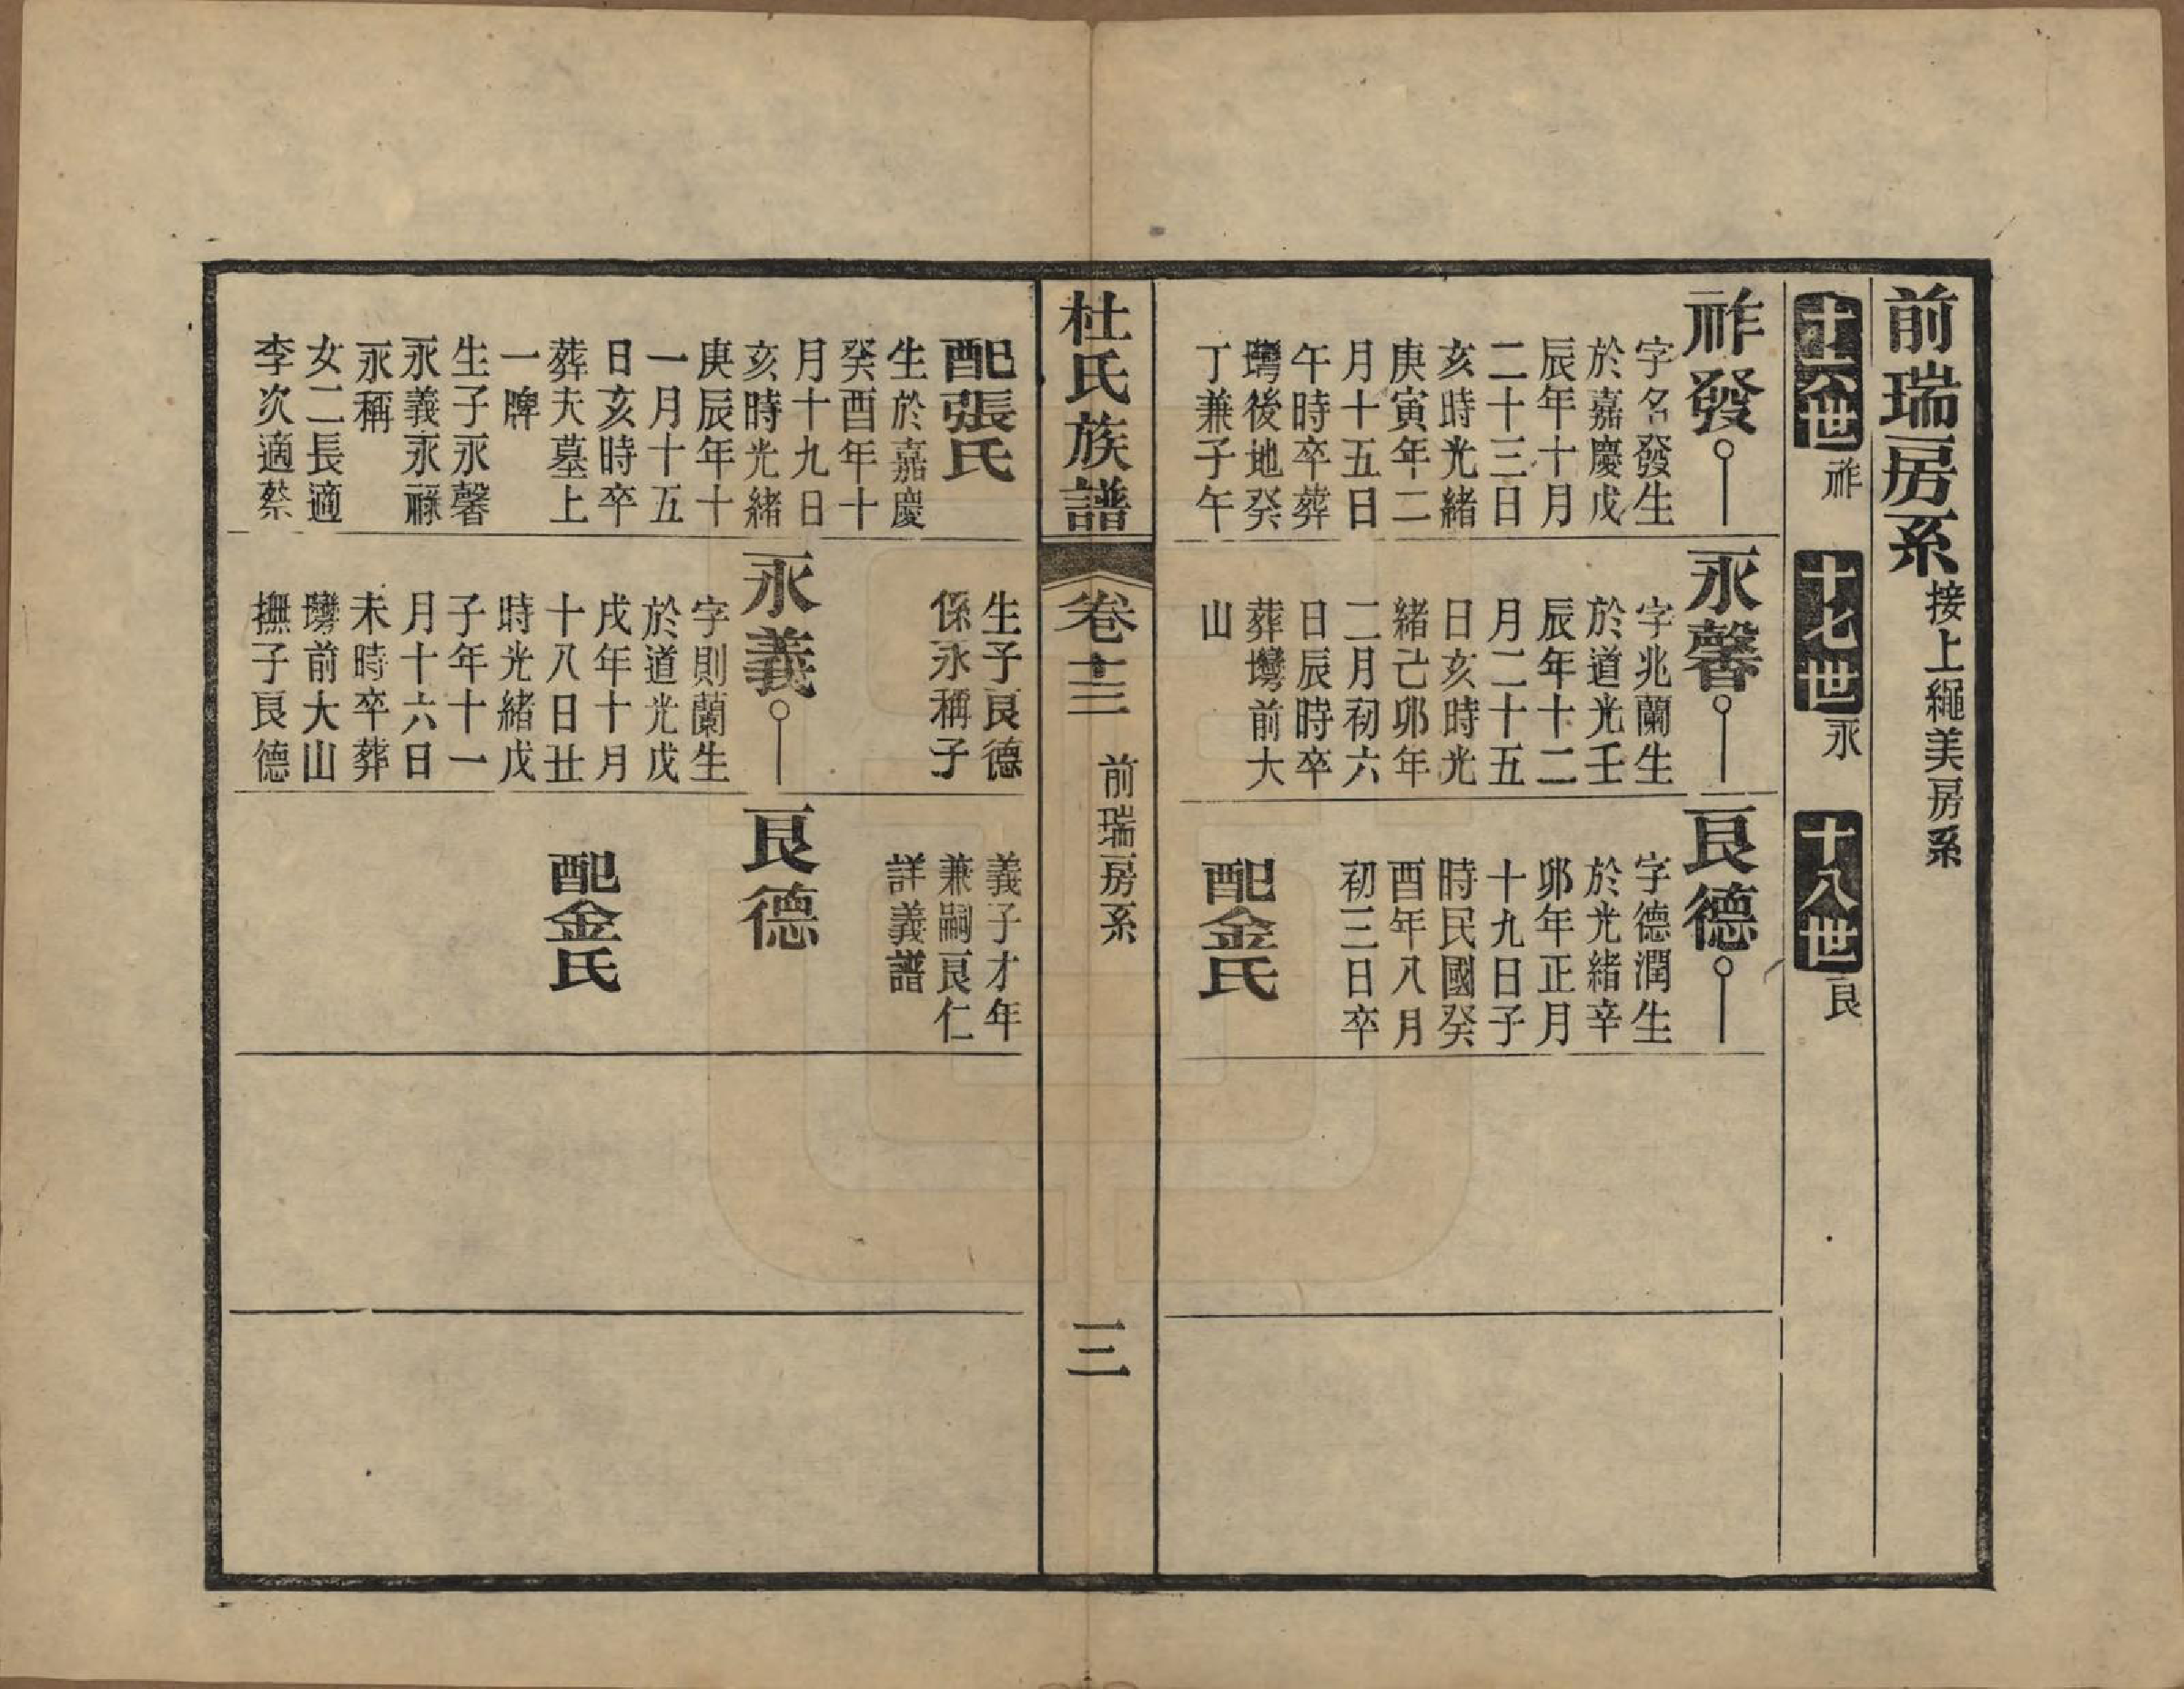 前瑞房系接上繩美房系
十六世祚
十七世永
十八世良
祚發
字名發生
於嘉慶戊
辰年十月
二十三日
亥時光緒
庚寅年二
月十五日
午時卒葬
壪後地癸
丁兼子午
永馨
字兆蘭生
於道光壬
辰年十二
月二十五
日亥時光
緒己卯年
二月初六
日辰時卒
葬壪前大
山
良德
字德潤生
於光緒辛
卯年正月
十九日子
時民國癸
酉年八月
初三日卒
配金氏
杜氏族譜
卷十三
前瑞房系
三
配張氏
生於嘉慶
癸酉年十
月十九日
亥時光緒
庚辰年十
一月十五
日亥時卒
葬夫墓上
一牌
生子永馨
永義永祿
永稱
女二長適
李次適蔡
生子良德
係永稱子
永義
字則蘭生
於道光戊
戌年十月
十八日丑
時光緒戊
子年十一
月十六日
未時卒葬
壪前大山
撫子良德
義子才年
兼嗣良仁
詳義譜
良德
配金氏